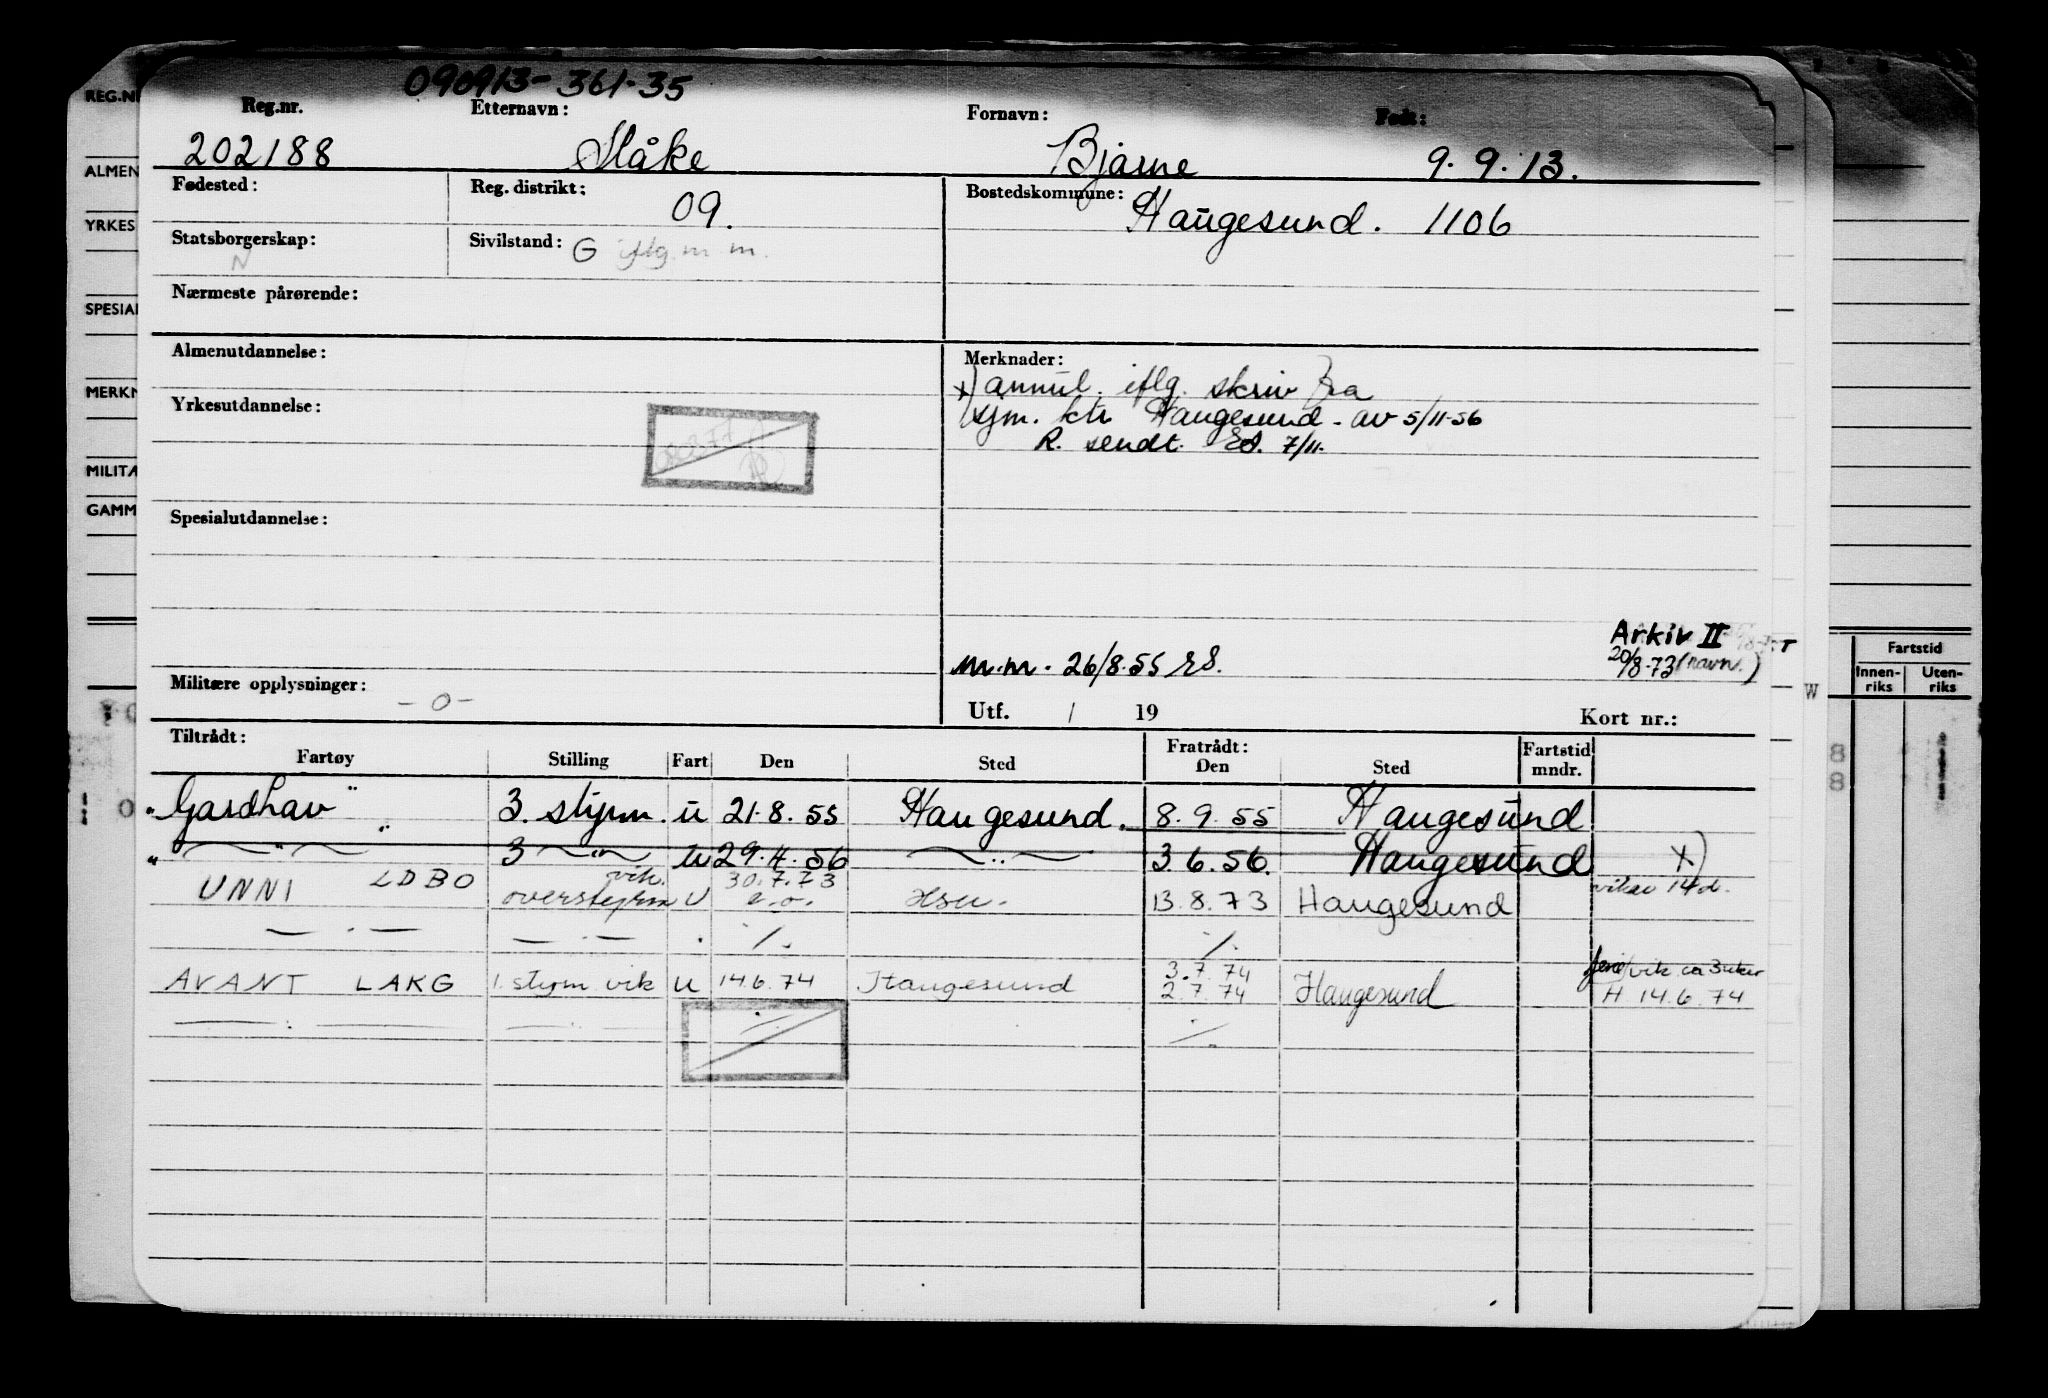 090913-361-35
Reg.nr. Etternavn: Fornavn: Født:
202188 Måke Bjarne 9.9.13.
Fødested: Reg. distrikt: 09. Bostedskommune: Haugesund. 1106
Statsborgerskap: N Sivilstand: G iflg. m m.
Nærmeste pårørende:
Almenutdannelse: Merknader:
x) annul. iflg. skriv fra
Yrkesutdannelse: sjm. ktr Haugesund - av 5/11-56
R. sendt. ES. 7/11.
Spesialutdannelse:
Arkiv II
m.m. 26/8.55 ES. 20/8-73 (navn.)
Militære opplysninger: -0-
Utf. / 19 Kort nr.:
Tiltrådt: Fratrådt: Fartstid
Fartøy Stilling Fart Den Sted Den Sted mndr.
"Gardhav" 3. styrm. u 21.8.55 Haugesund. 8.9.55 Haugesund
" — " — " 3 — " — u 29.4.56 — " — 3.6.56. Haugesund x)
vik. 30.7.73 vikar 14 d.
UNNI LDBO overstyrm U e.o. Hsu. 13.8.73 Haugesund
— . — — . — . ./. ./.
3.7.74 vik ca 3 uker
AVANT LAKG 1. styrm vik u 14.6.74 Haugesund 2.7.74 Haugesund H 14.6.74
— : — — : — ./. ./.
REG.NR
ALMEN
YRKES
SPESIAL
MERKN
MILITÆ
GAMM
Fartstid
Innen-riks Uten-riks
W
8
8